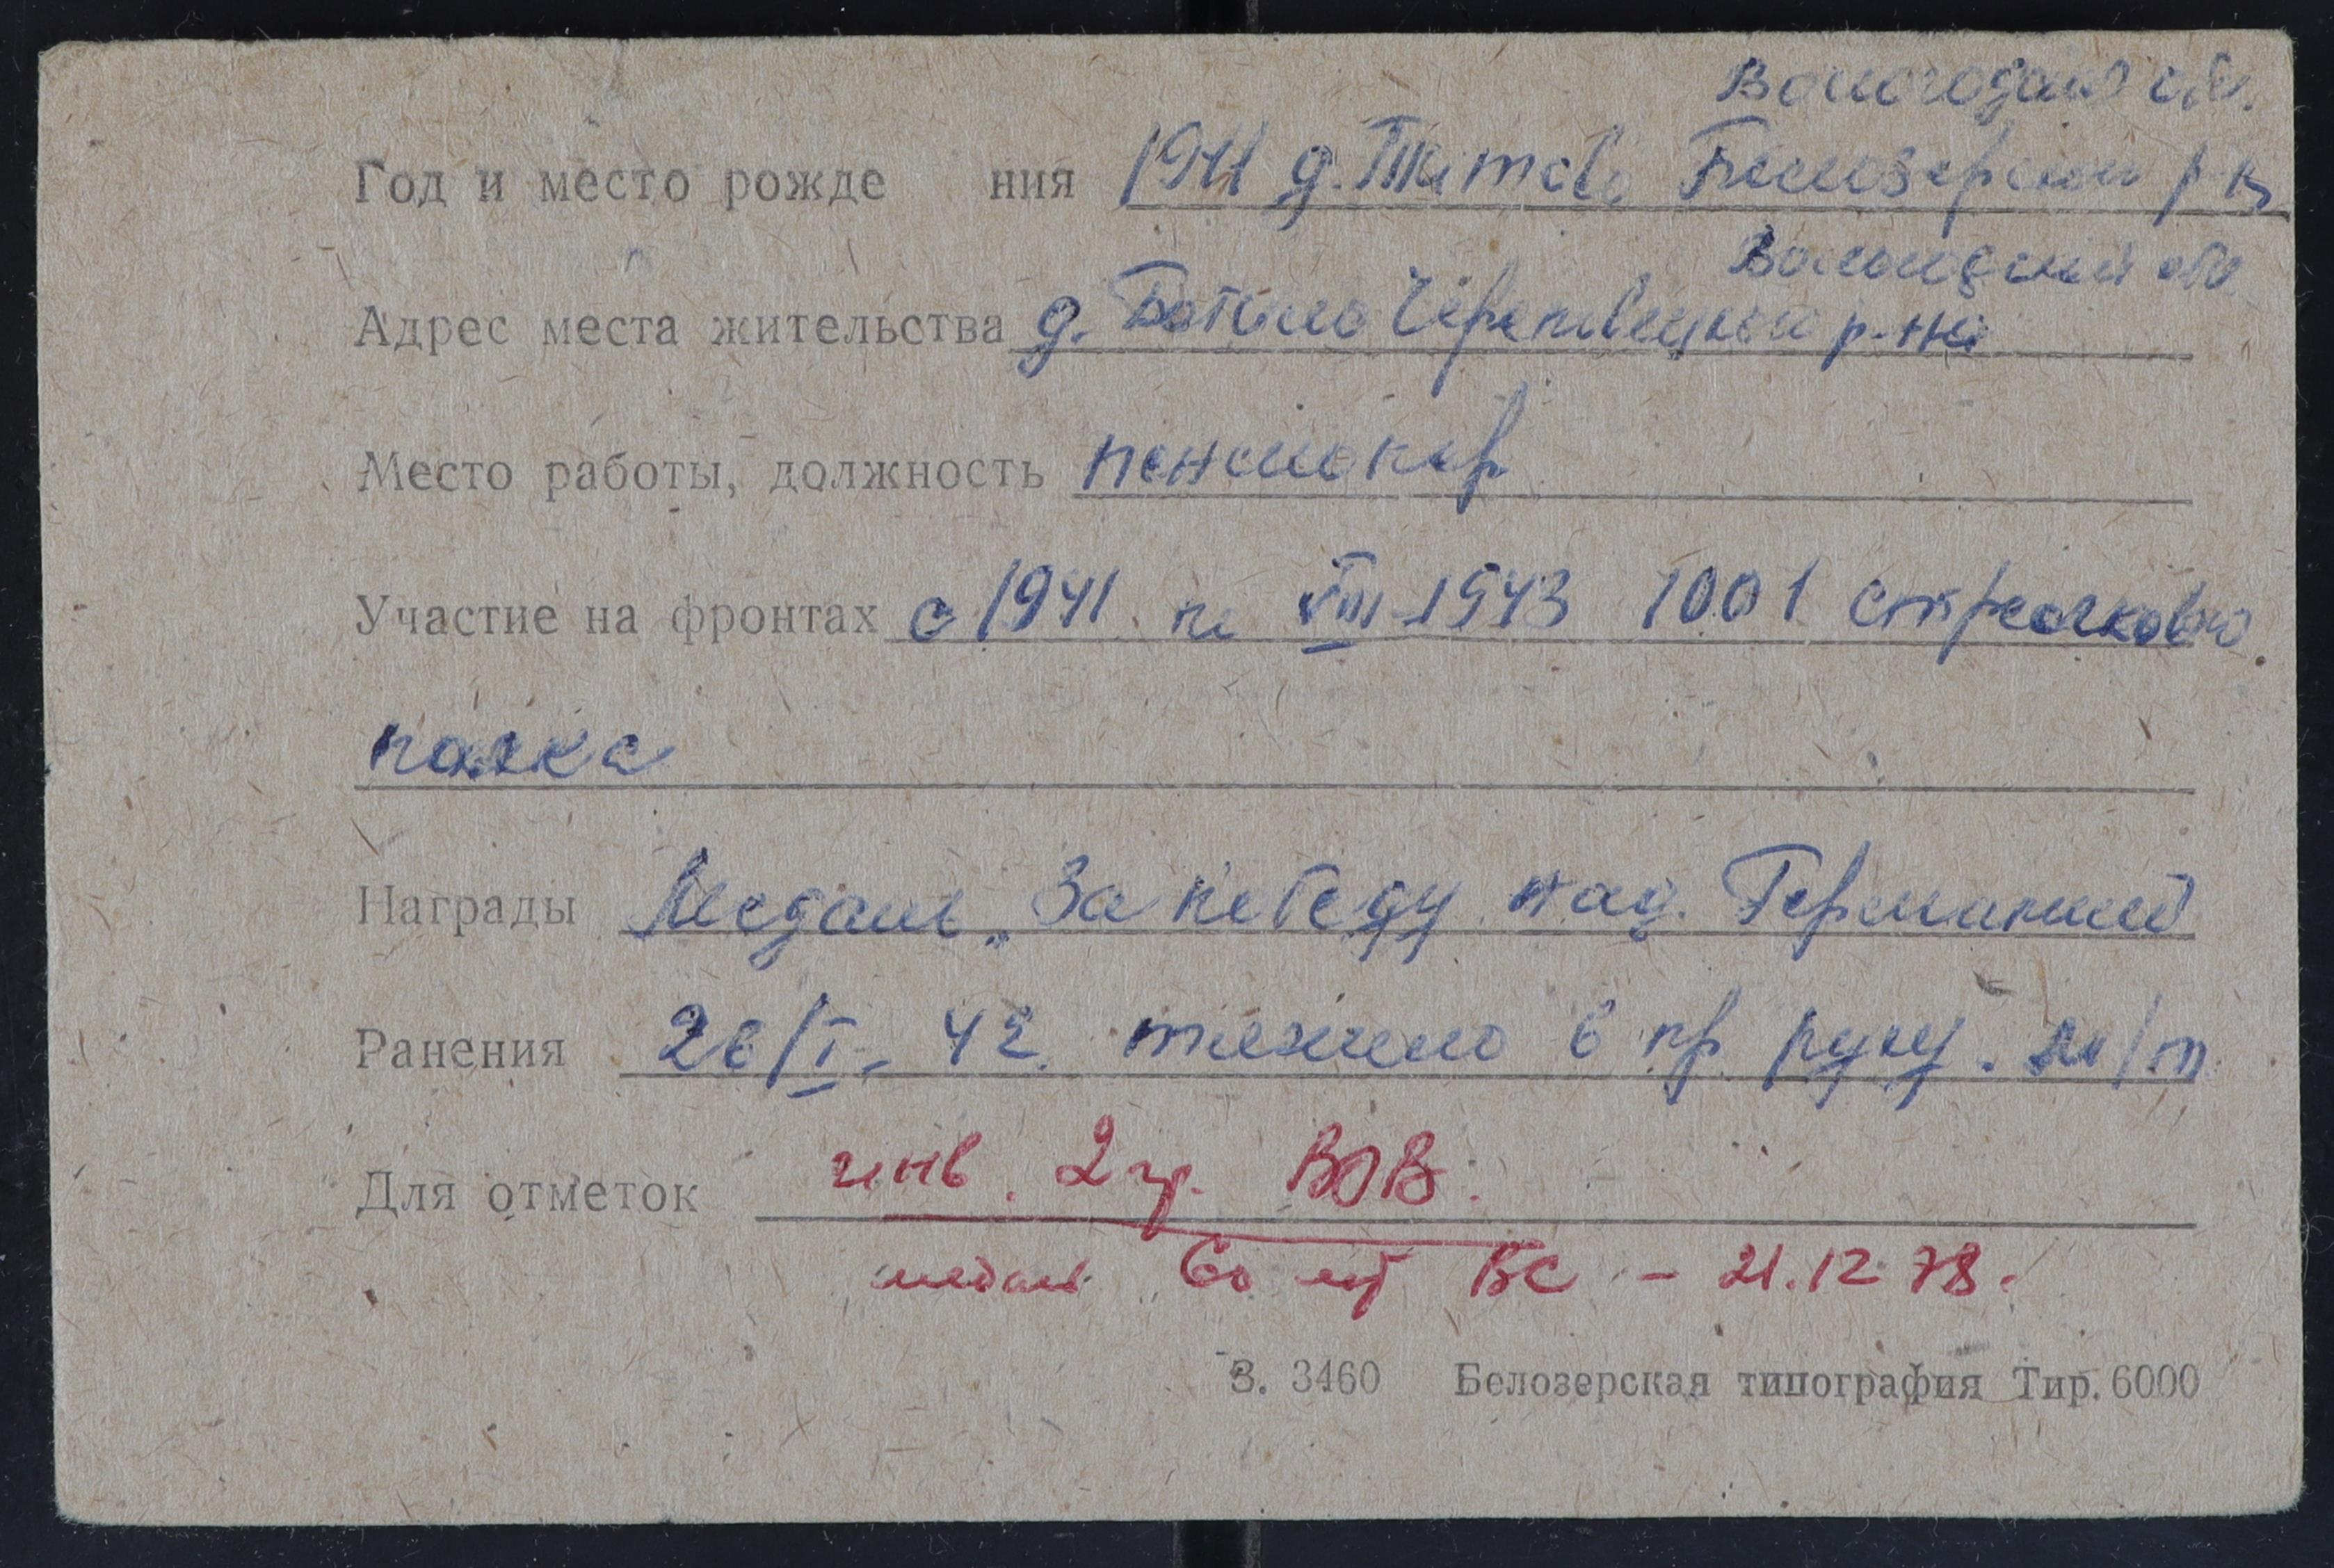 Вологодской обл.
Год и место рожде ния 1911 д. Титово Белозерский р-н
Вологодской обл
Адрес места жительства д. Ботово Череповецкого р-на
Место работы, должность пенсионер
Участие на фронтах с 1941 по VIII-1943 1001 стрелкового
полка
Награды Медаль „За победу над Германией
Ранения 26/I-42 тяжело в пр руку.
Для отметок инв. 2 гр. ВОВ.
медаль 60 лет ВС - 21.12.78.
З. 3460 Белозерская типография Тир. 6000